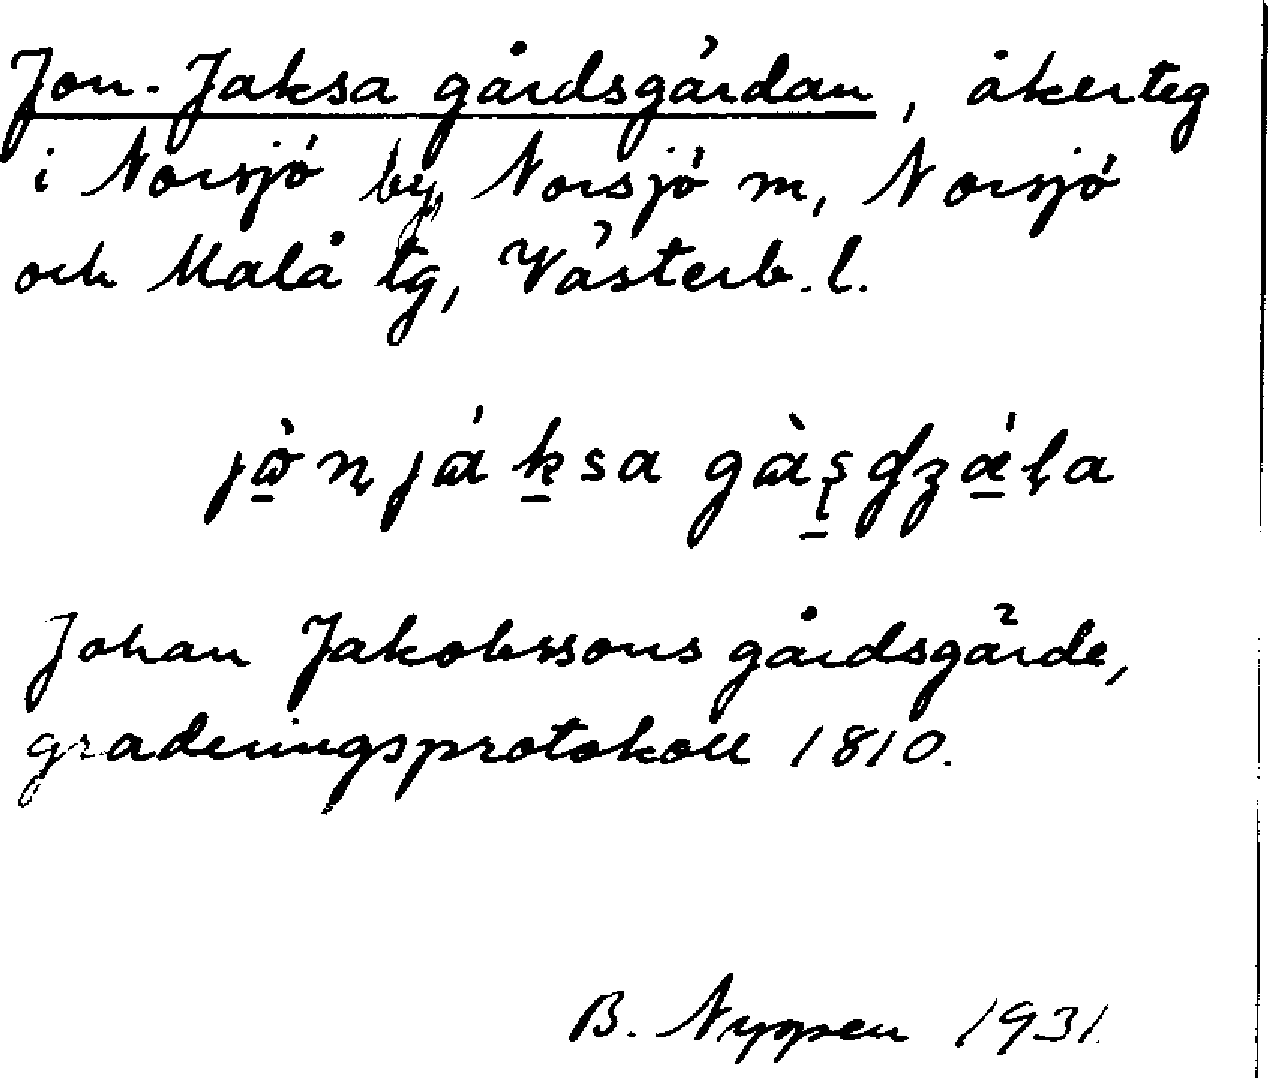 Jon-Jaksa gårdsgärdan, åkerteg
i Norsjö by, Norsjö m, Norsjö
och Malå tg, Västerb.l.
Johan Jakobssons gårdsgärde,
graderingsprotokoll 1810.
B. Nyppen 1931.